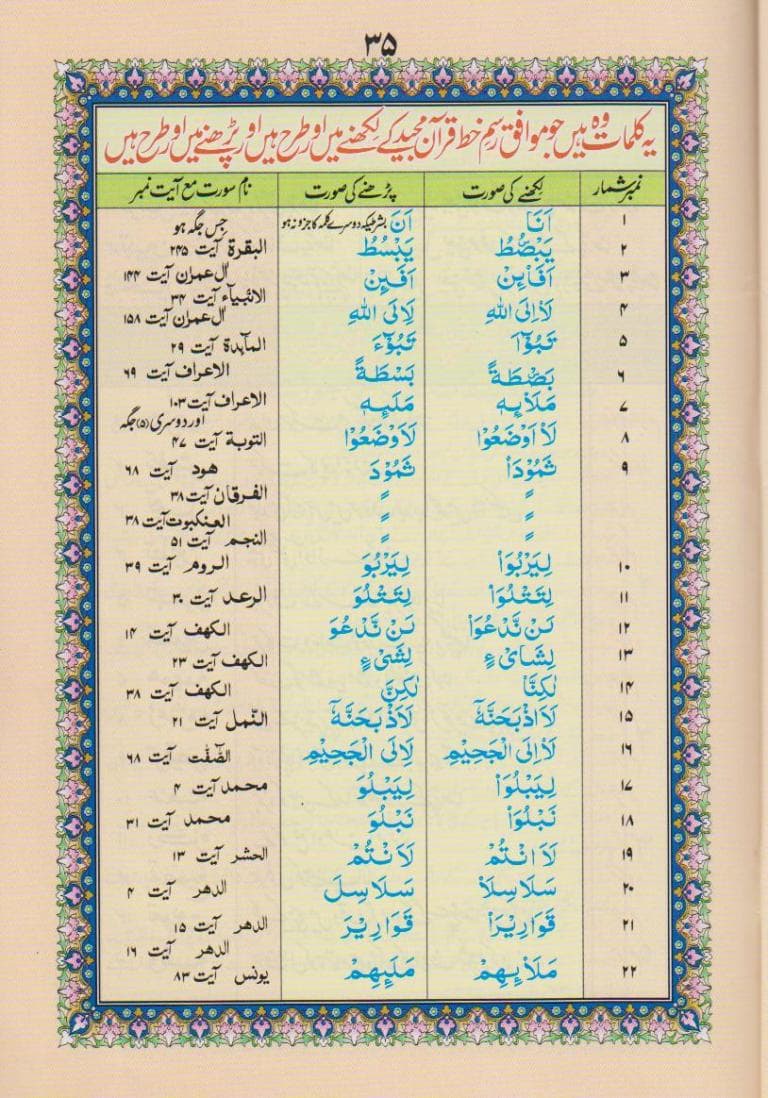 ۳۵
یہ کلمات وہ ہیں جو موافق رسم خط قرآن مجید کے لکھنے میں اور طرح ہیں اور پڑھنے میں اور طرح ہیں
نمبر شمار لکھنے کی صورت پڑھنے کی صورت نام سورت مع آیت نمبر
۱ اَنَا اَنَ بشرطیکہ دوسرے کلمہ کا جز و نہ ہو جس جگہ ہو
۲ یَبْصُۜطُ یَبْسُطُ البقرة آیت ۲۴۵
۳ اَفَا۟ئِنْ اَفَئِنْ اٰل عمران آیت ۱۴۴
الانبیآء آیت ۳۴
۴ لَا۟اِلَی اللّٰهِ لَاِلَی اللّٰهِ اٰل عمران آیت ۱۵۸
۵ تَبُوْٓاَ۟ تَبُوْٓءَ المآىِٕدة آیت ۲۹
۶ بَصْۜطَةً بَسْطَةً الاعراف آیت ۶۹
۷ مَلَا۟ىِٕهٖ مَلَىِٕهٖ الاعراف آیت ۱۰۳
اور دوسری (۵) جگہ
۸ لَا۟اَوْضَعُوْا لَاَوْضَعُوْا التوبة آیت ۴۷
۹ ثَمُوْدَا۟ ثَمُوْدَ هود آیت ۶۸
〃 〃 الفرقان آیت ۳۸
〃 〃 العنکبوت آیت ۳۸
〃 〃 النجم آیت ۵۱
۱۰ لِیَرْبُوَا۟ لِیَرْبُوَ الروم آیت ۳۹
۱۱ لِتَتْلُوَا۟ لِتَتْلُوَ الرعد آیت ۳۰
۱۲ لَنْ نَّدْعُوَا۟ لَنْ نَّدْعُوَ الکهف آیت ۱۴
۱۳ لِشَا۟یْءٍ لِشَیْءٍ الکهف آیت ۲۳
۱۴ لٰکِنَّا۟ لٰکِنَّ الکهف آیت ۳۸
۱۵ لَا۟اَذْبَحَنَّهٗٓ لَاَذْبَحَنَّهٗٓ النّمل آیت ۲۱
۱۶ لَا۟اِلَی الْجَحِیْمِ لَاِلَی الْجَحِیْمِ الصّٰٓفّٰت آیت ۶۸
۱۷ لِیَبْلُوَا۟ لِیَبْلُوَ محمد آیت ۴
۱۸ نَبْلُوَا۟ نَبْلُوَ محمد آیت ۳۱
۱۹ لَا۟اَنْتُمْ لَاَنْتُمْ الحشر آیت ۱۳
۲۰ سَلَاسِلَا۟ سَلَاسِلَ الدهر آیت ۴
۲۱ قَوَارِیْرَا۟ قَوَارِیْرَ الدهر آیت ۱۵
الدهر آیت ۱۶
۲۲ مَلَا۟ىِٕهِمْ مَلَىِٕهِمْ یونس آیت ۸۳